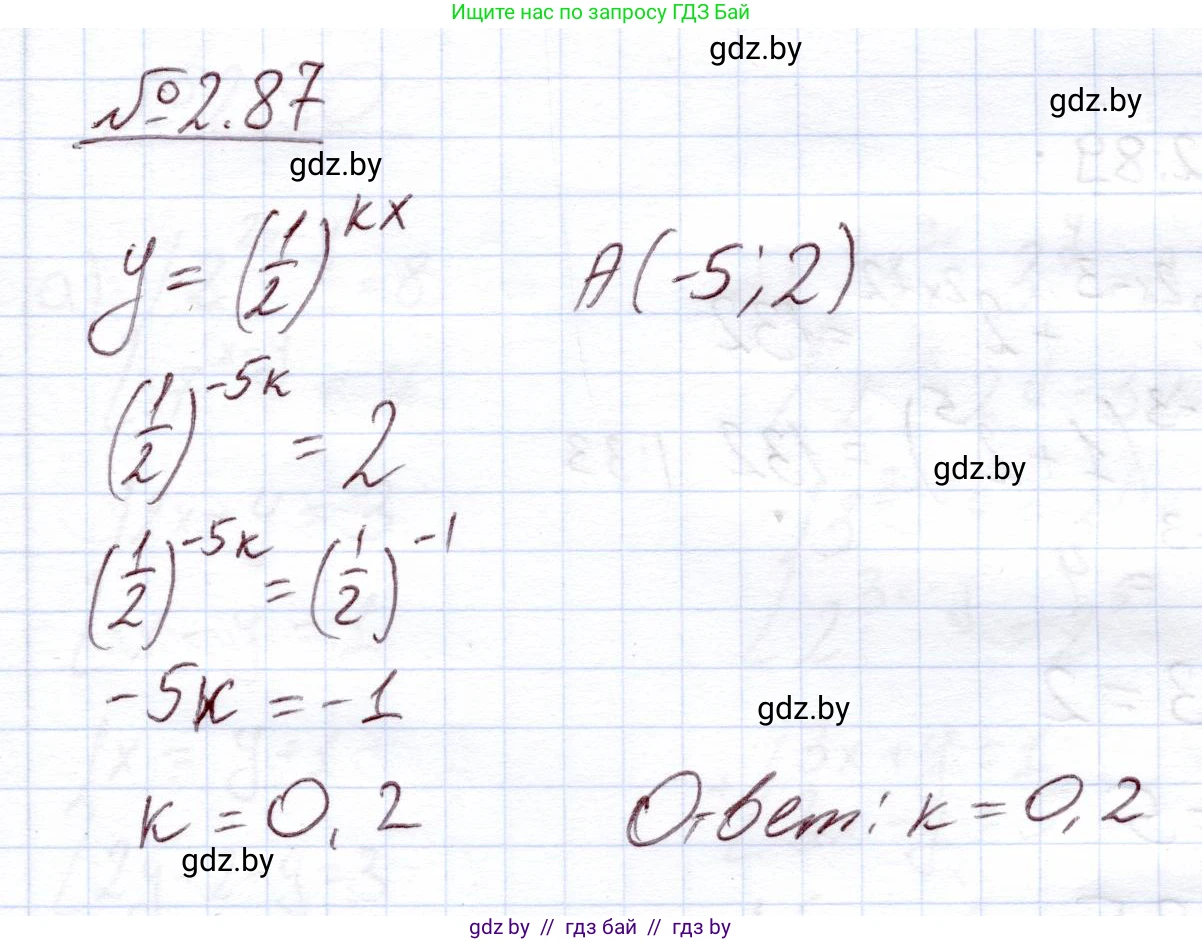 Ищите нас по запросу ГДЗ Бай
gdz.by
gdz.by
№2.87
gdz.by
y = (1/2)^kx A(-5; 2)
(1/2)^-5k = 2
gdz.by
(1/2)^-5k = (1/2)^-1
-5k = -1
gdz.by
k = 0,2 Ответ: k = 0,2
gdz.by
gdz.by // гдз бай // гдз by